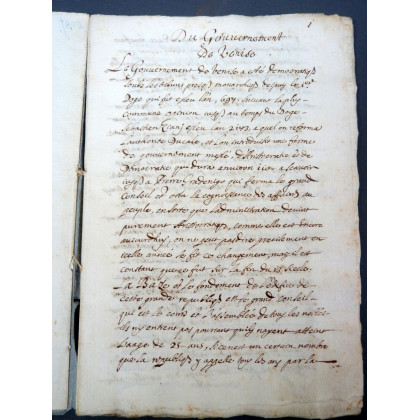 1
Du Gouvernement
De Venise
Le Gouvernement de Venise a esté democratiq
Doge qui fut esleu l'an 697, suivant la plus
commune opinion jusq au temps du Doge
esleu l'an 1172, auquel on reforma
l'authorité Ducale, et on introduisit une forme
de gouvernement meslé, d'Aristocratie et de
Democratie qui dura environ
jusq a Pierre Gradenigo qui forma le grand
Conseil et osta la cognoissance des affaires au
peuple, en sorte que l'administration devint
purement Aristocratique, comme elle est encore
aujourdhuy, on ne peut pas dire precisement en
quelle année se fit ce changement, mais il est
constant que ce fut sur la fin du siecle.
La Baze et le fondement de l'Estat de
cette grande republiq est ce grand Conseil
qui est le corps et l'assemblée de tous les nobles
ils n'y entrent pas pourtant qu'ils n'ayent atteint
l'aage de 25 ans, si ce n'est un certain nombre
que la republiq y appelle tous les ans par la